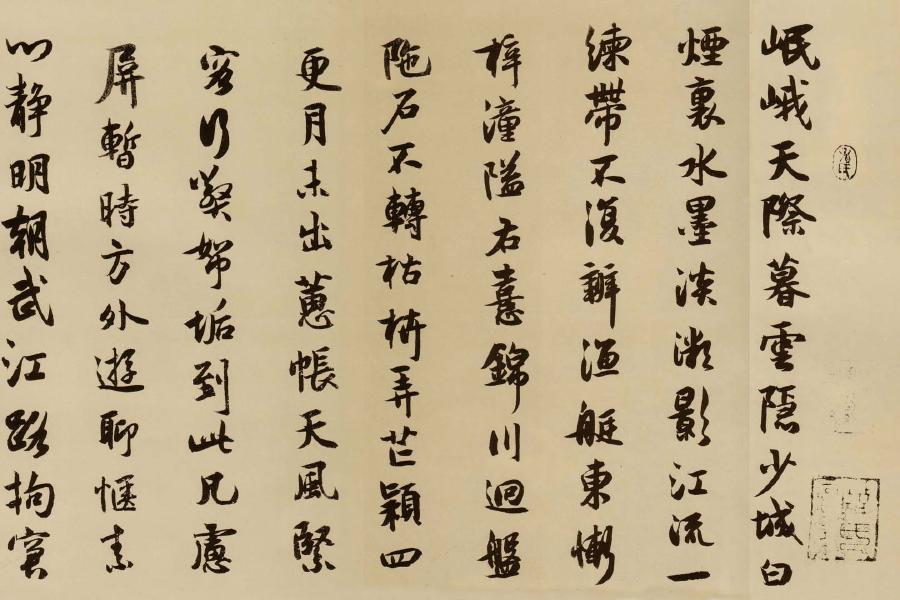 岷峨天際暮雲隱少城白
煙裏水墨淡瀲影江流一
練帶不復辨漁艇東慚
梓潼隘右憙錦川迴盤
陁石不轉枯枿弄芒穎四
更月未出蕙帳天風緊
客行褧帑垢到此凡慮
屏暫時方外遊聊愜素
心靜明朝武江路拘窘